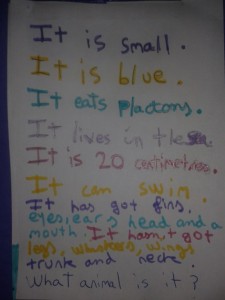 It is small.
It is blue.
It eats plactons.
It lives in the sea.
It is 20 centimetres.
It can swim.
It has got fins,
eyes, ears, head and a
mouth. It hasn't got
legs, whiskers, wings
trunk and neck.
What animal is it?